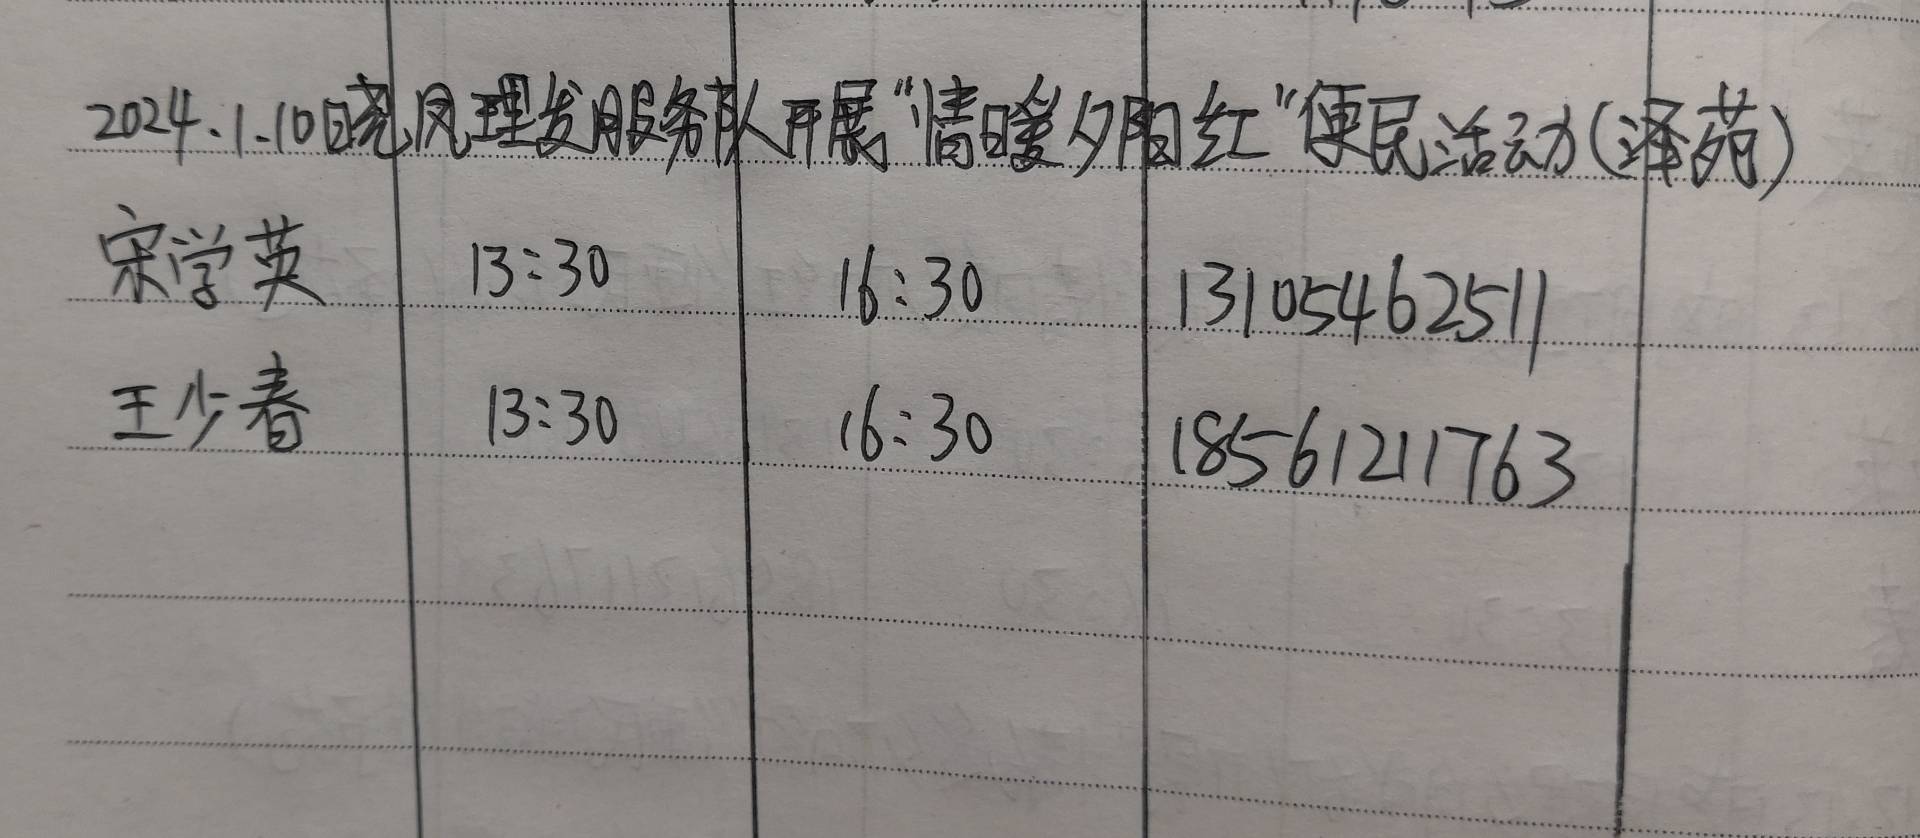 2024.1.10晓凤理发服务队开展“情暖夕阳红”便民活动(泽苑)
宋学英 13:30 16:30 13105462511
王少春 13:30 16:30 18561211763